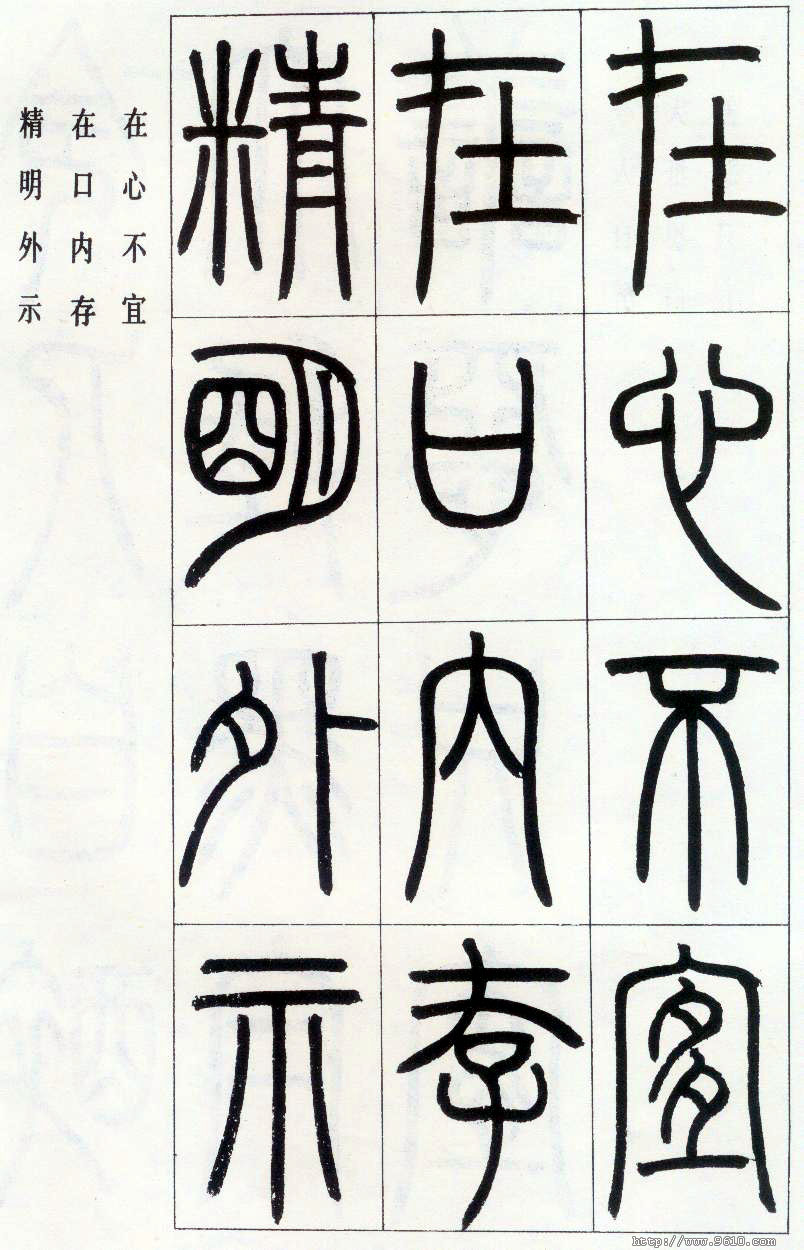 在心不宜
在口内存
精明外示
在心不宜
在口内存
精明外示
http://www.9610.com